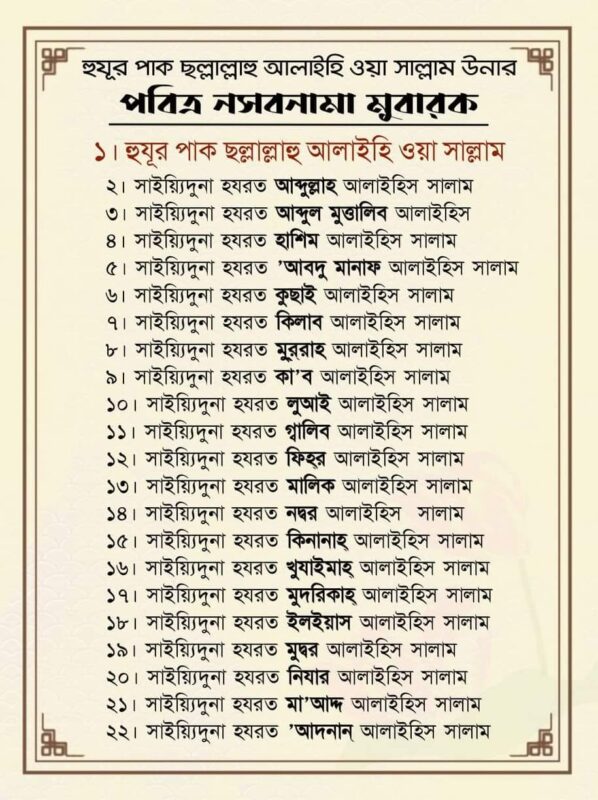 হুযূর পাক ছল্লাল্লাহু আলাইহি ওয়া সাল্লাম উনার
পবিত্র নসবনামা মুবারক
১। হুযূর পাক ছল্লাল্লাহু আলাইহি ওয়া সাল্লাম
২। সাইয়্যিদুনা হযরত আব্দুল্লাহ আলাইহিস সালাম
৩। সাইয়্যিদুনা হযরত আব্দুল মুত্তালিব আলাইহিস
৪। সাইয়্যিদুনা হযরত হাশিম আলাইহিস সালাম
৫। সাইয়্যিদুনা হযরত ’আবদু মানাফ আলাইহিস সালাম
৬। সাইয়্যিদুনা হযরত কুছাই আলাইহিস সালাম
৭। সাইয়্যিদুনা হযরত কিলাব আলাইহিস সালাম
৮। সাইয়্যিদুনা হযরত মুর্‌রাহ আলাইহিস সালাম
৯। সাইয়্যিদুনা হযরত কা’ব আলাইহিস সালাম
১০। সাইয়্যিদুনা হযরত লুআই আলাইহিস সালাম
১১। সাইয়্যিদুনা হযরত গ্বালিব আলাইহিস সালাম
১২। সাইয়্যিদুনা হযরত ফিহ্‌র আলাইহিস সালাম
১৩। সাইয়্যিদুনা হযরত মালিক আলাইহিস সালাম
১৪। সাইয়্যিদুনা হযরত নদ্বর আলাইহিস সালাম
১৫। সাইয়্যিদুনা হযরত কিনানাহ্ আলাইহিস সালাম
১৬। সাইয়্যিদুনা হযরত খুযাইমাহ্ আলাইহিস সালাম
১৭। সাইয়্যিদুনা হযরত মুদরিকাহ্ আলাইহিস সালাম
১৮। সাইয়্যিদুনা হযরত ইলইয়াস আলাইহিস সালাম
১৯। সাইয়্যিদুনা হযরত মুদ্বর আলাইহিস সালাম
২০। সাইয়্যিদুনা হযরত নিযার আলাইহিস সালাম
২১। সাইয়্যিদুনা হযরত মা’আদ্দ আলাইহিস সালাম
২২। সাইয়্যিদুনা হযরত ’আদনান্ আলাইহিস সালাম